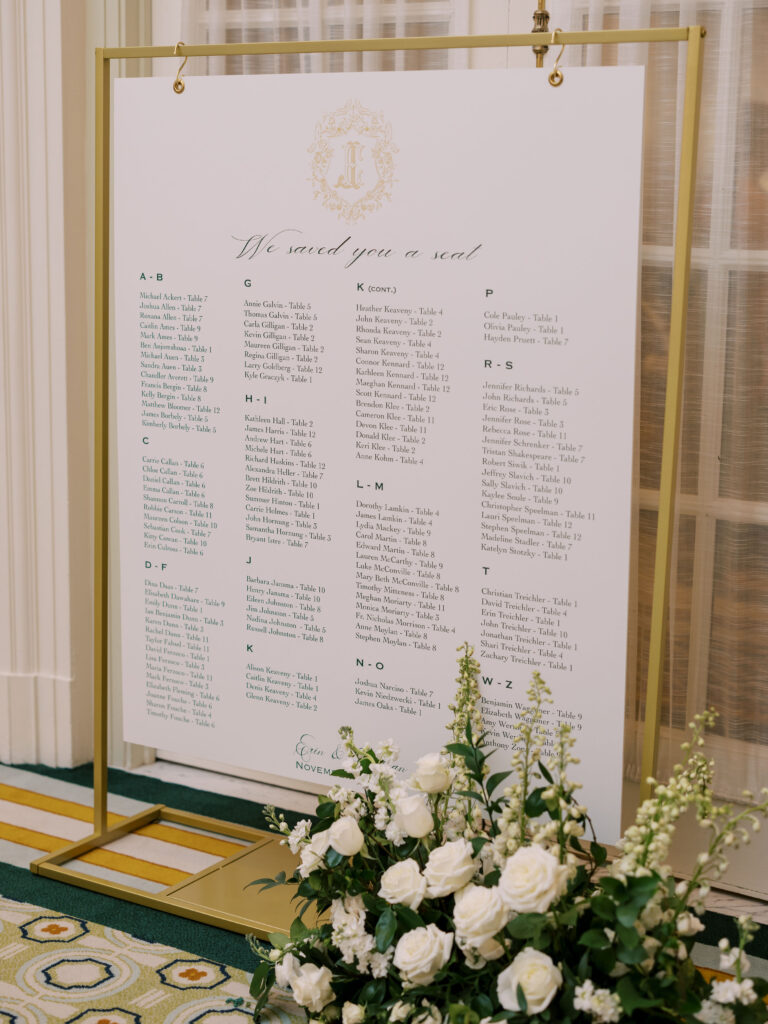 We saved you a seat
A - B
Michael Ackert - Table 7
Joshua Allen - Table 7
Roxana Allen - Table 7
Caitlin Ames - Table 9
Mark Ames - Table 9
Ben Anjomshoaa - Table 1
Michael Auen - Table 3
Sandra Auen - Table 3
Chandler Averett - Table 9
Francis Bergin - Table 8
Kelly Bergin - Table 8
Matthew Bloomer - Table 12
James Borbely - Table 5
Kimberly Borbely - Table 5
C
Carrie Callan - Table 6
Chloe Callan - Table 6
Daniel Callan - Table 6
Emma Callan - Table 6
Shannon Carroll - Table 8
Robbie Carson - Table 11
Maureen Colson - Table 10
Sebastian Cook - Table 7
Kitty Cowan - Table 10
Erin - Table 6
D - F
Dino Daas - Table 7
Elizabeth - Table 9
Emily Dunn - Table 1
Ian Benjamin Dunn - Table 3
Karen Dunn - Table 3
Rachel Dunn - Table 11
Taylor - Table 11
David Ferneco - Table 1
Lisa Ferneco - Table 3
Maria Ferneco - Table 11
Mark Ferneco - Table 3
Elizabeth Fleming - Table 6
Joanne Fouche - Table 6
Sharon Fouche - Table 4
Timothy Fouche - Table 6
G
Annie Galvin - Table 5
Thomas Galvin - Table 5
Carla Gilligan - Table 2
Kevin Gilligan - Table 2
Maureen Gilligan - Table 2
Regina Gilligan - Table 2
Larry Goldberg - Table 12
Kyle Graczyk - Table 1
H - I
Kathleen Hall - Table 2
James Harris - Table 12
Andrew Hart - Table 6
Michele Hart - Table 6
Richard Haskins - Table 12
Alexandra Heller - Table 7
Brett Hildrith - Table 10
Zoe Hildrith - Table 10
Summer Hinton - Table 1
Carrie Holmes - Table 1
John Hornung - Table 3
Samantha Hornung - Table 3
Bryant Istre - Table 7
J
Barbara Janama - Table 10
Henry Janama - Table 10
Eileen Johnston - Table 8
Jim Johnston - Table 5
Nadina Johnston - Table 5
Russell Johnston - Table 8
K
Alison Keaveny - Table 1
Caitlin Keaveny - Table 1
Denis Keaveny - Table 4
Glenn Keaveny - Table 2
K (CONT.)
Heather Keaveny - Table 4
John Keaveny - Table 2
Rhanda Keaveny - Table 2
Sean Keaveny - Table 4
Sharon Keaveny - Table 4
Connor Kennard - Table 12
Kathleen Kennard - Table 12
Maeghan Kennard - Table 12
Scott Kennard - Table 12
Brendon Klee - Table 2
Cameron Klee - Table 11
Devon Klee - Table 11
Donald Klee - Table 2
Keri Klee - Table 2
Anne Kohm - Table 4
L - M
Dorothy Lamkin - Table 4
James Lamkin - Table 4
Lydia Mackey - Table 9
Carol Martin - Table 8
Edward Martin - Table 8
Lauren McCarthy - Table 9
Luke McConville - Table 8
Mary Beth McConville - Table 8
Timothy Mitteness - Table 8
Meghan Moriarty - Table 11
Monica Moriarty - Table 3
Fr. Nicholas Morrison - Table 4
Anne Moylan - Table 8
Stephen Moylan - Table 8
N - O
Joshua Narciso - Table 7
Kevin Niedzwecki - Table 1
James Oaks - Table 1
P
Cole Pauley - Table 1
Olivia Pauley - Table 1
Hayden Pruett - Table 7
R - S
Jennifer Richards - Table 5
John Richards - Table 5
Eric Rose - Table 3
Jennifer Rose - Table 3
Rebecca Rose - Table 11
Jennifer Schrenker - Table 7
Tristan Shakespeare - Table 7
Robert Siwik - Table 1
Jeffrey Slavich - Table 10
Sally Slavich - Table 10
Kaylee Soule - Table 9
Christopher Speelman - Table 11
Lauri Speelman - Table 12
Stephen Speelman - Table 12
Madeline Stadler - Table 7
Katelyn Stotzky - Table 1
T
Christian Treichler - Table 1
David Treichler - Table 4
Erin Treichler - Table 1
John Treichler - Table 10
Jonathan Treichler - Table 1
Shari Treichler - Table 4
Zachary Treichler - Table 1
W - Z
Benjamin Wagoner - Table 9
Elizabeth Wagoner - Table 9
Amy - Table 3
Table 3
Table 4
Erin &
NOVEM